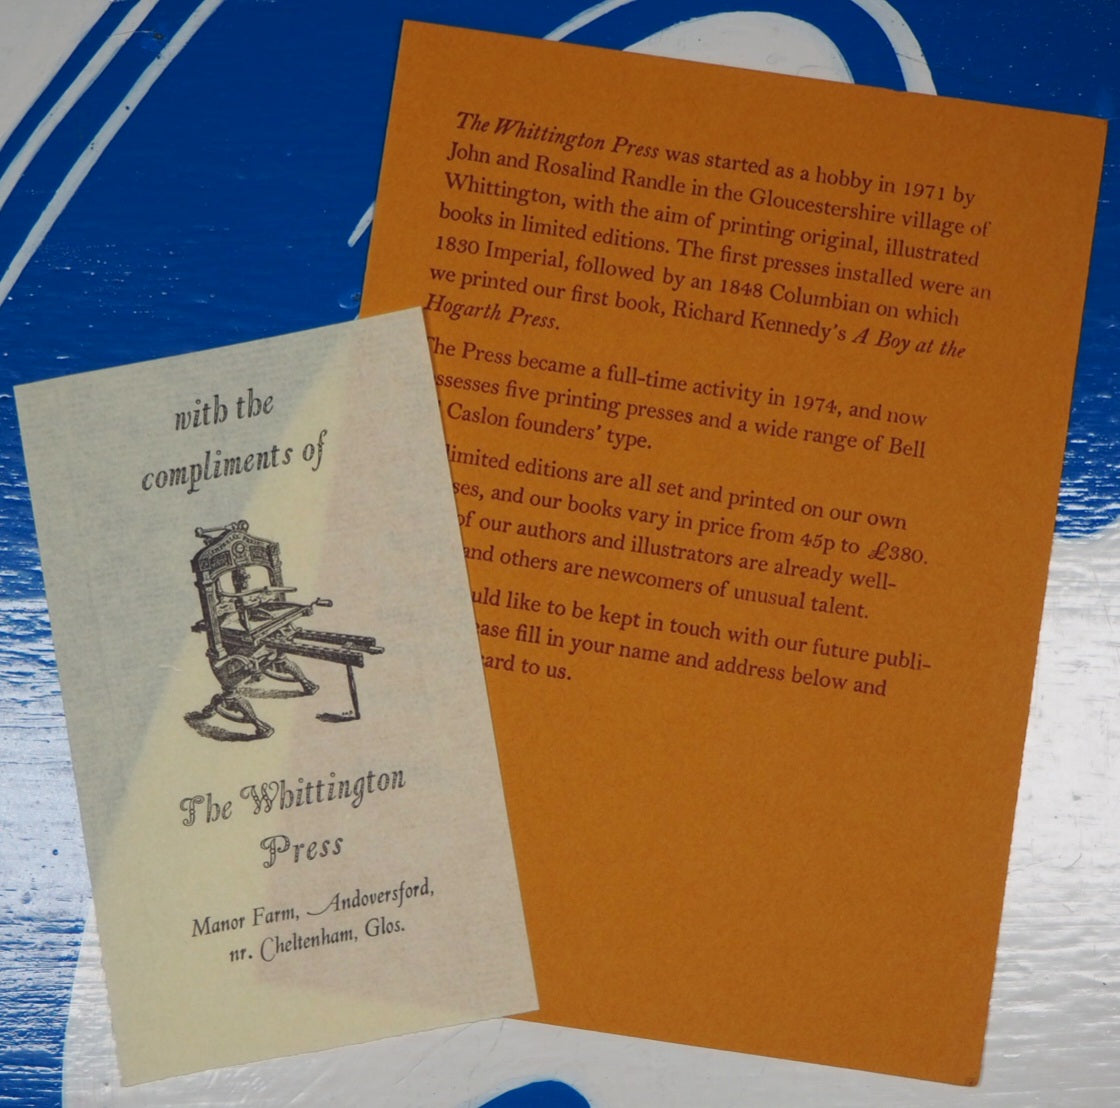 The Whittington Press was started as a hobby in 1971 by
John and Rosalind Randle in the Gloucestershire village of
Whittington, with the aim of printing original, illustrated
books in limited editions. The first presses installed were an
1830 Imperial, followed by an 1848 Columbian on which
we printed our first book, Richard Kennedy's A Boy at the
Hogarth Press.
The Press became a full-time activity in 1974, and now
ssesses five printing presses and a wide range of Bell
Caslon founders' type.
limited editions are all set and printed on our own
ses, and our books vary in price from 45p to £380.
of our authors and illustrators are already well-
and others are newcomers of unusual talent.
uld like to be kept in touch with our future publi-
ease fill in your name and address below and
card to us.
with the
compliments of
The Whittington
Press
Manor Farm, Andoversford,
nr. Cheltenham, Glos.